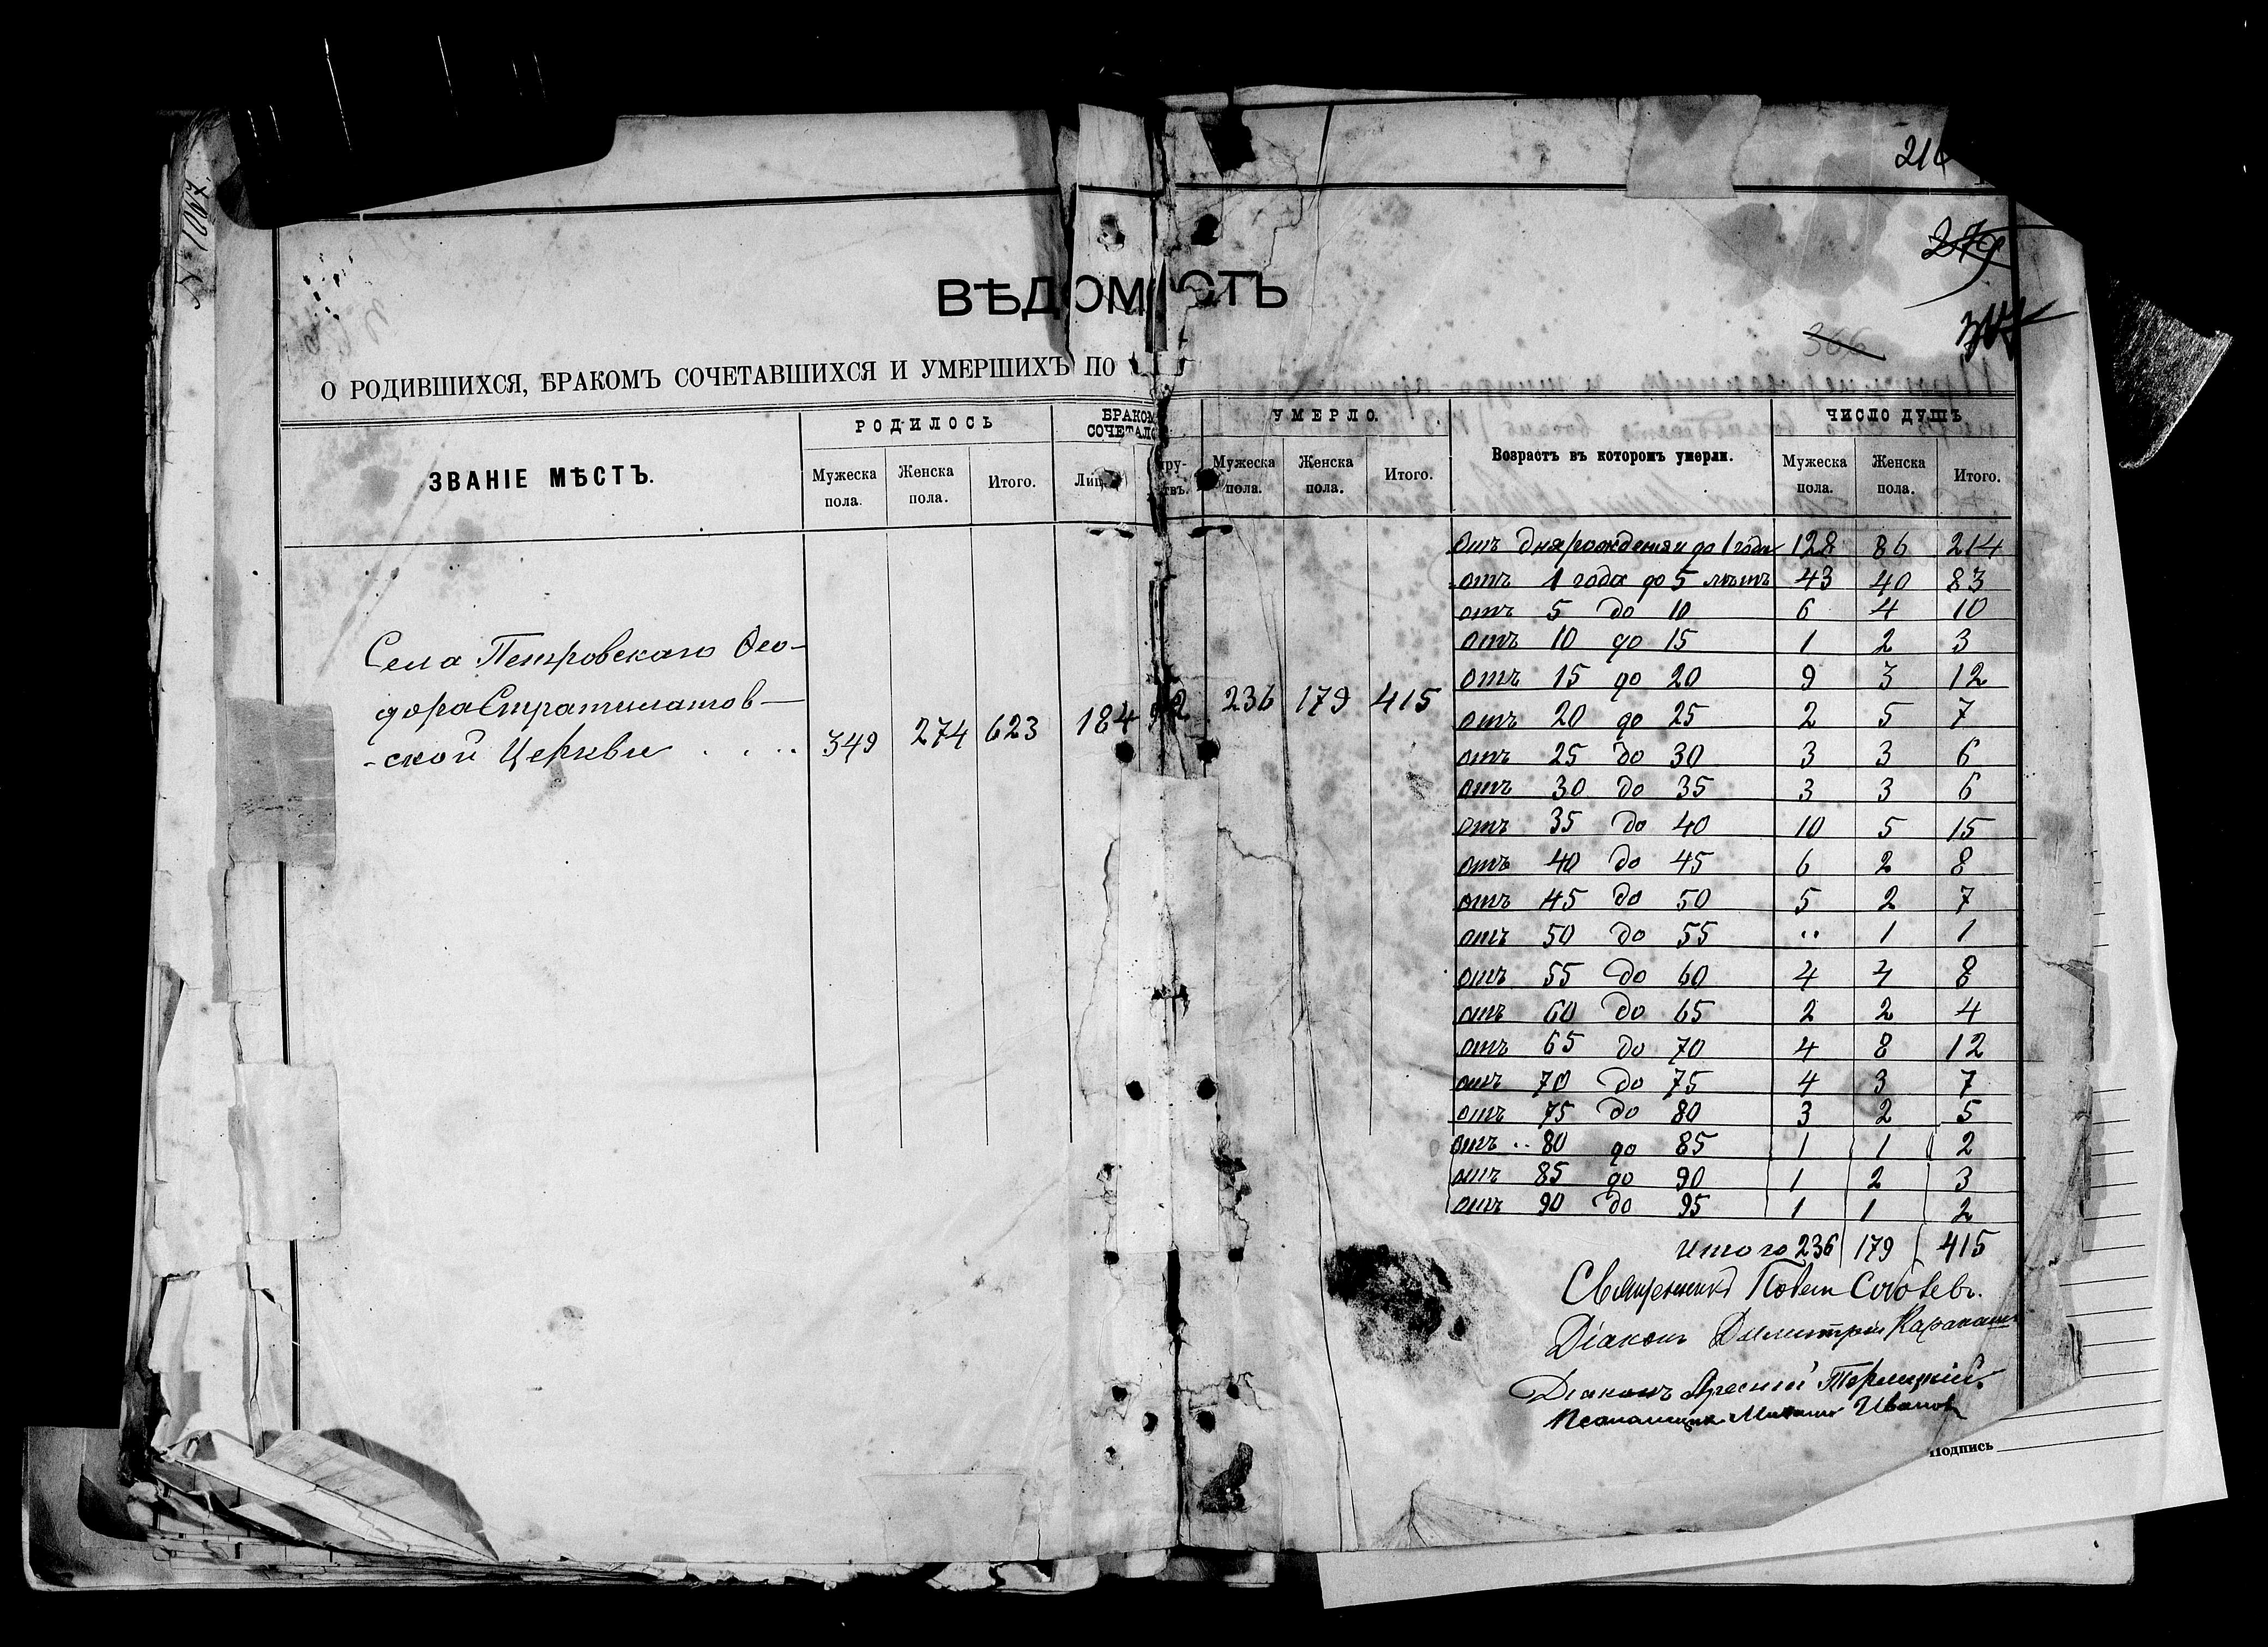 № 1067.
279
366
ВѢДОМОСТЬ
О РОДИВШИХСЯ, БРАКОМЪ СОЧЕТАВШИХСЯ И УМЕРШИХЪ ПО
ЗВАНІЕ МѢСТЪ.
РОДИЛОСЬ
Мужеска пола.
Женска пола.
Итого.
БРАКОМ
СОЧЕТАЛО
Лиц
УМЕРЛО.
Мужеска пола.
Женска пола.
Итого.
Возрастъ въ которомъ умерли.
ЧИСЛО ДУШЪ
Мужеска пола.
Женска пола.
Итого.
Села Петровскаго Ѳео-
дора Стратилатов-
-ской Церкви . . .. 349 274 623 184 92 236 179 415
Отъ дня рожденія до 1 года 128 86 214
отъ 1 года до 5 лѣтъ 43 40 83
отъ 5 до 10 6 4 10
отъ 10 до 15 1 2 3
отъ 15 до 20 9 3 12
отъ 20 до 25 2 5 7
отъ 25 до 30 3 3 6
отъ 30 до 35 3 3 6
отъ 35 до 40 10 5 15
отъ 40 до 45 6 2 8
отъ 45 до 50 5 2 7
отъ 50 до 55 .. 1 1
отъ 55 до 60 4 4 8
отъ 60 до 65 2 2 4
отъ 65 до 70 4 8 12
отъ 70 до 75 4 3 7
отъ 75 до 80 3 2 5
отъ .. 80 до 85 1 1 2
отъ 85 до 90 1 2 3
отъ 90 до 95 1 1 2
Итого 236 179 415
Священникъ Павелъ
Діаконъ Димитрій
Діаконъ
Псаломщик Михаил Иванов
Подпись